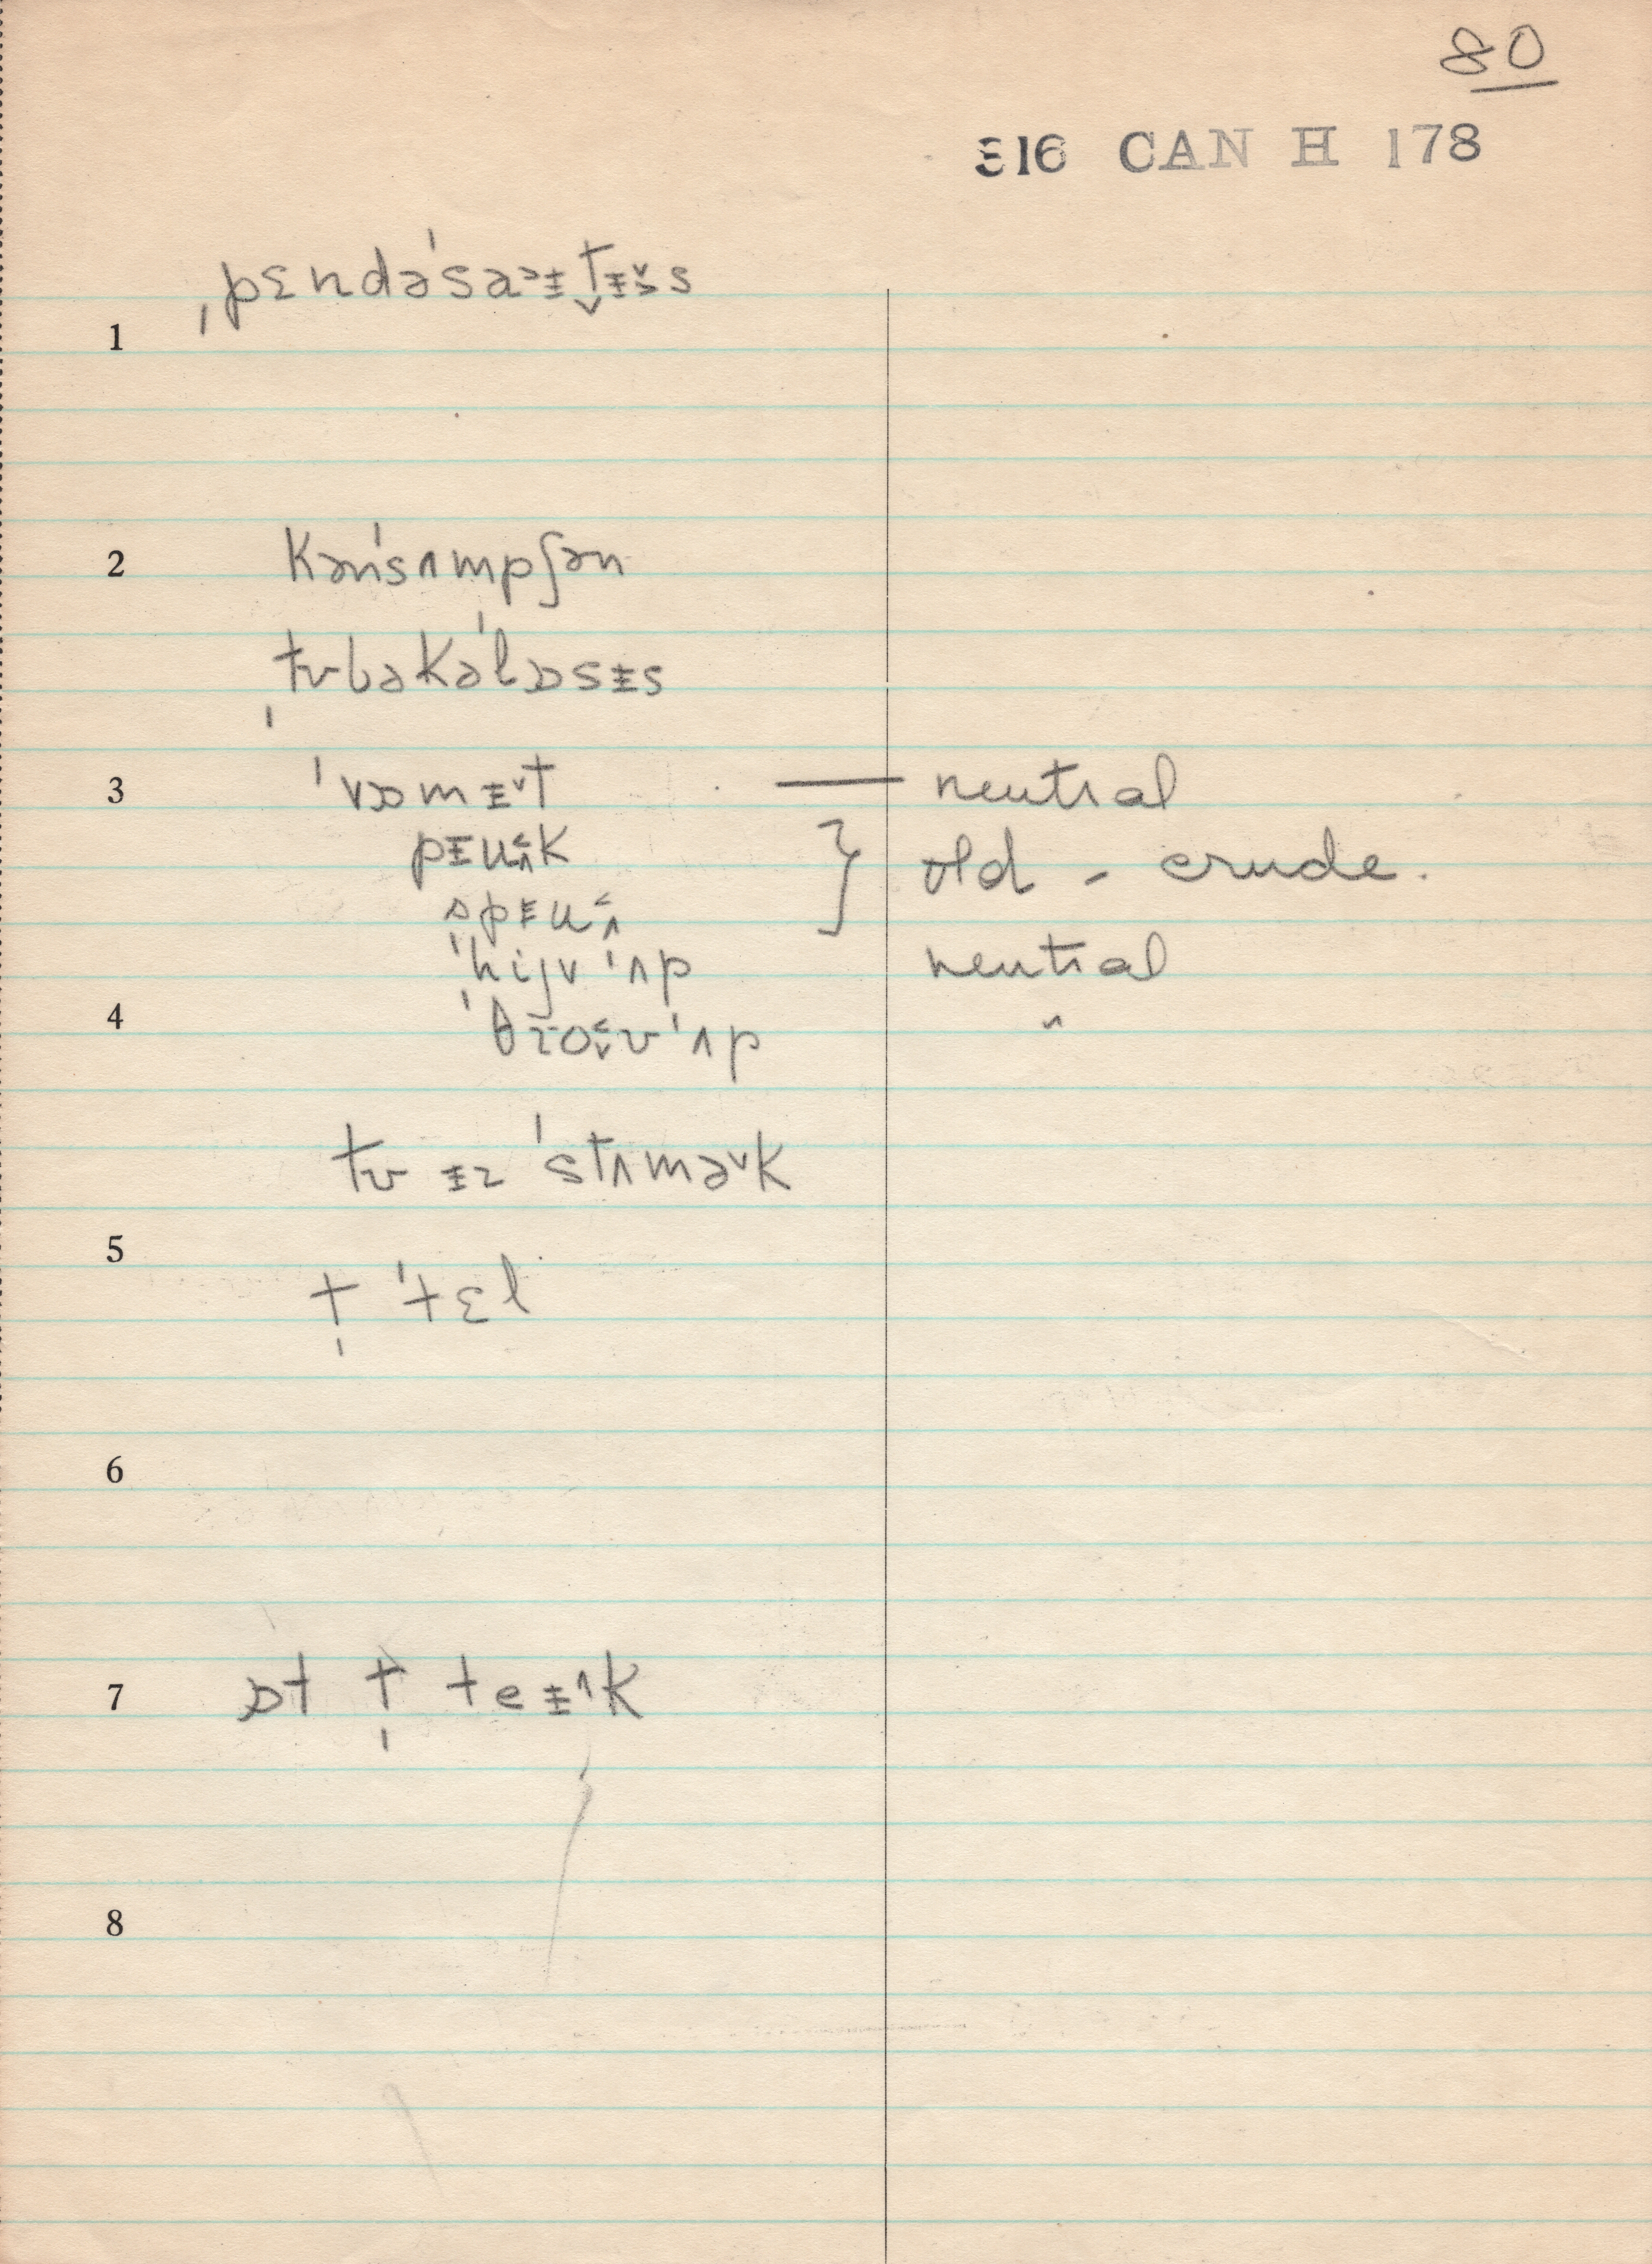 80
316 CAN H 178
ˌpɛndəˈsaɪtɪs
1
2 kənˈsʌmpʃən
tubəkəˈlosɪs
3 ˈvɒmɪt — neutral
pɪuk } old - crude.
spɪu
ˈhijv ˈʌp neutral
4 ˈθroʊ ˈʌp "
tu ɪz ˈstʌmək
5 t̩ ˈtɛl
6
7 ɒt t̩ teɪk
8